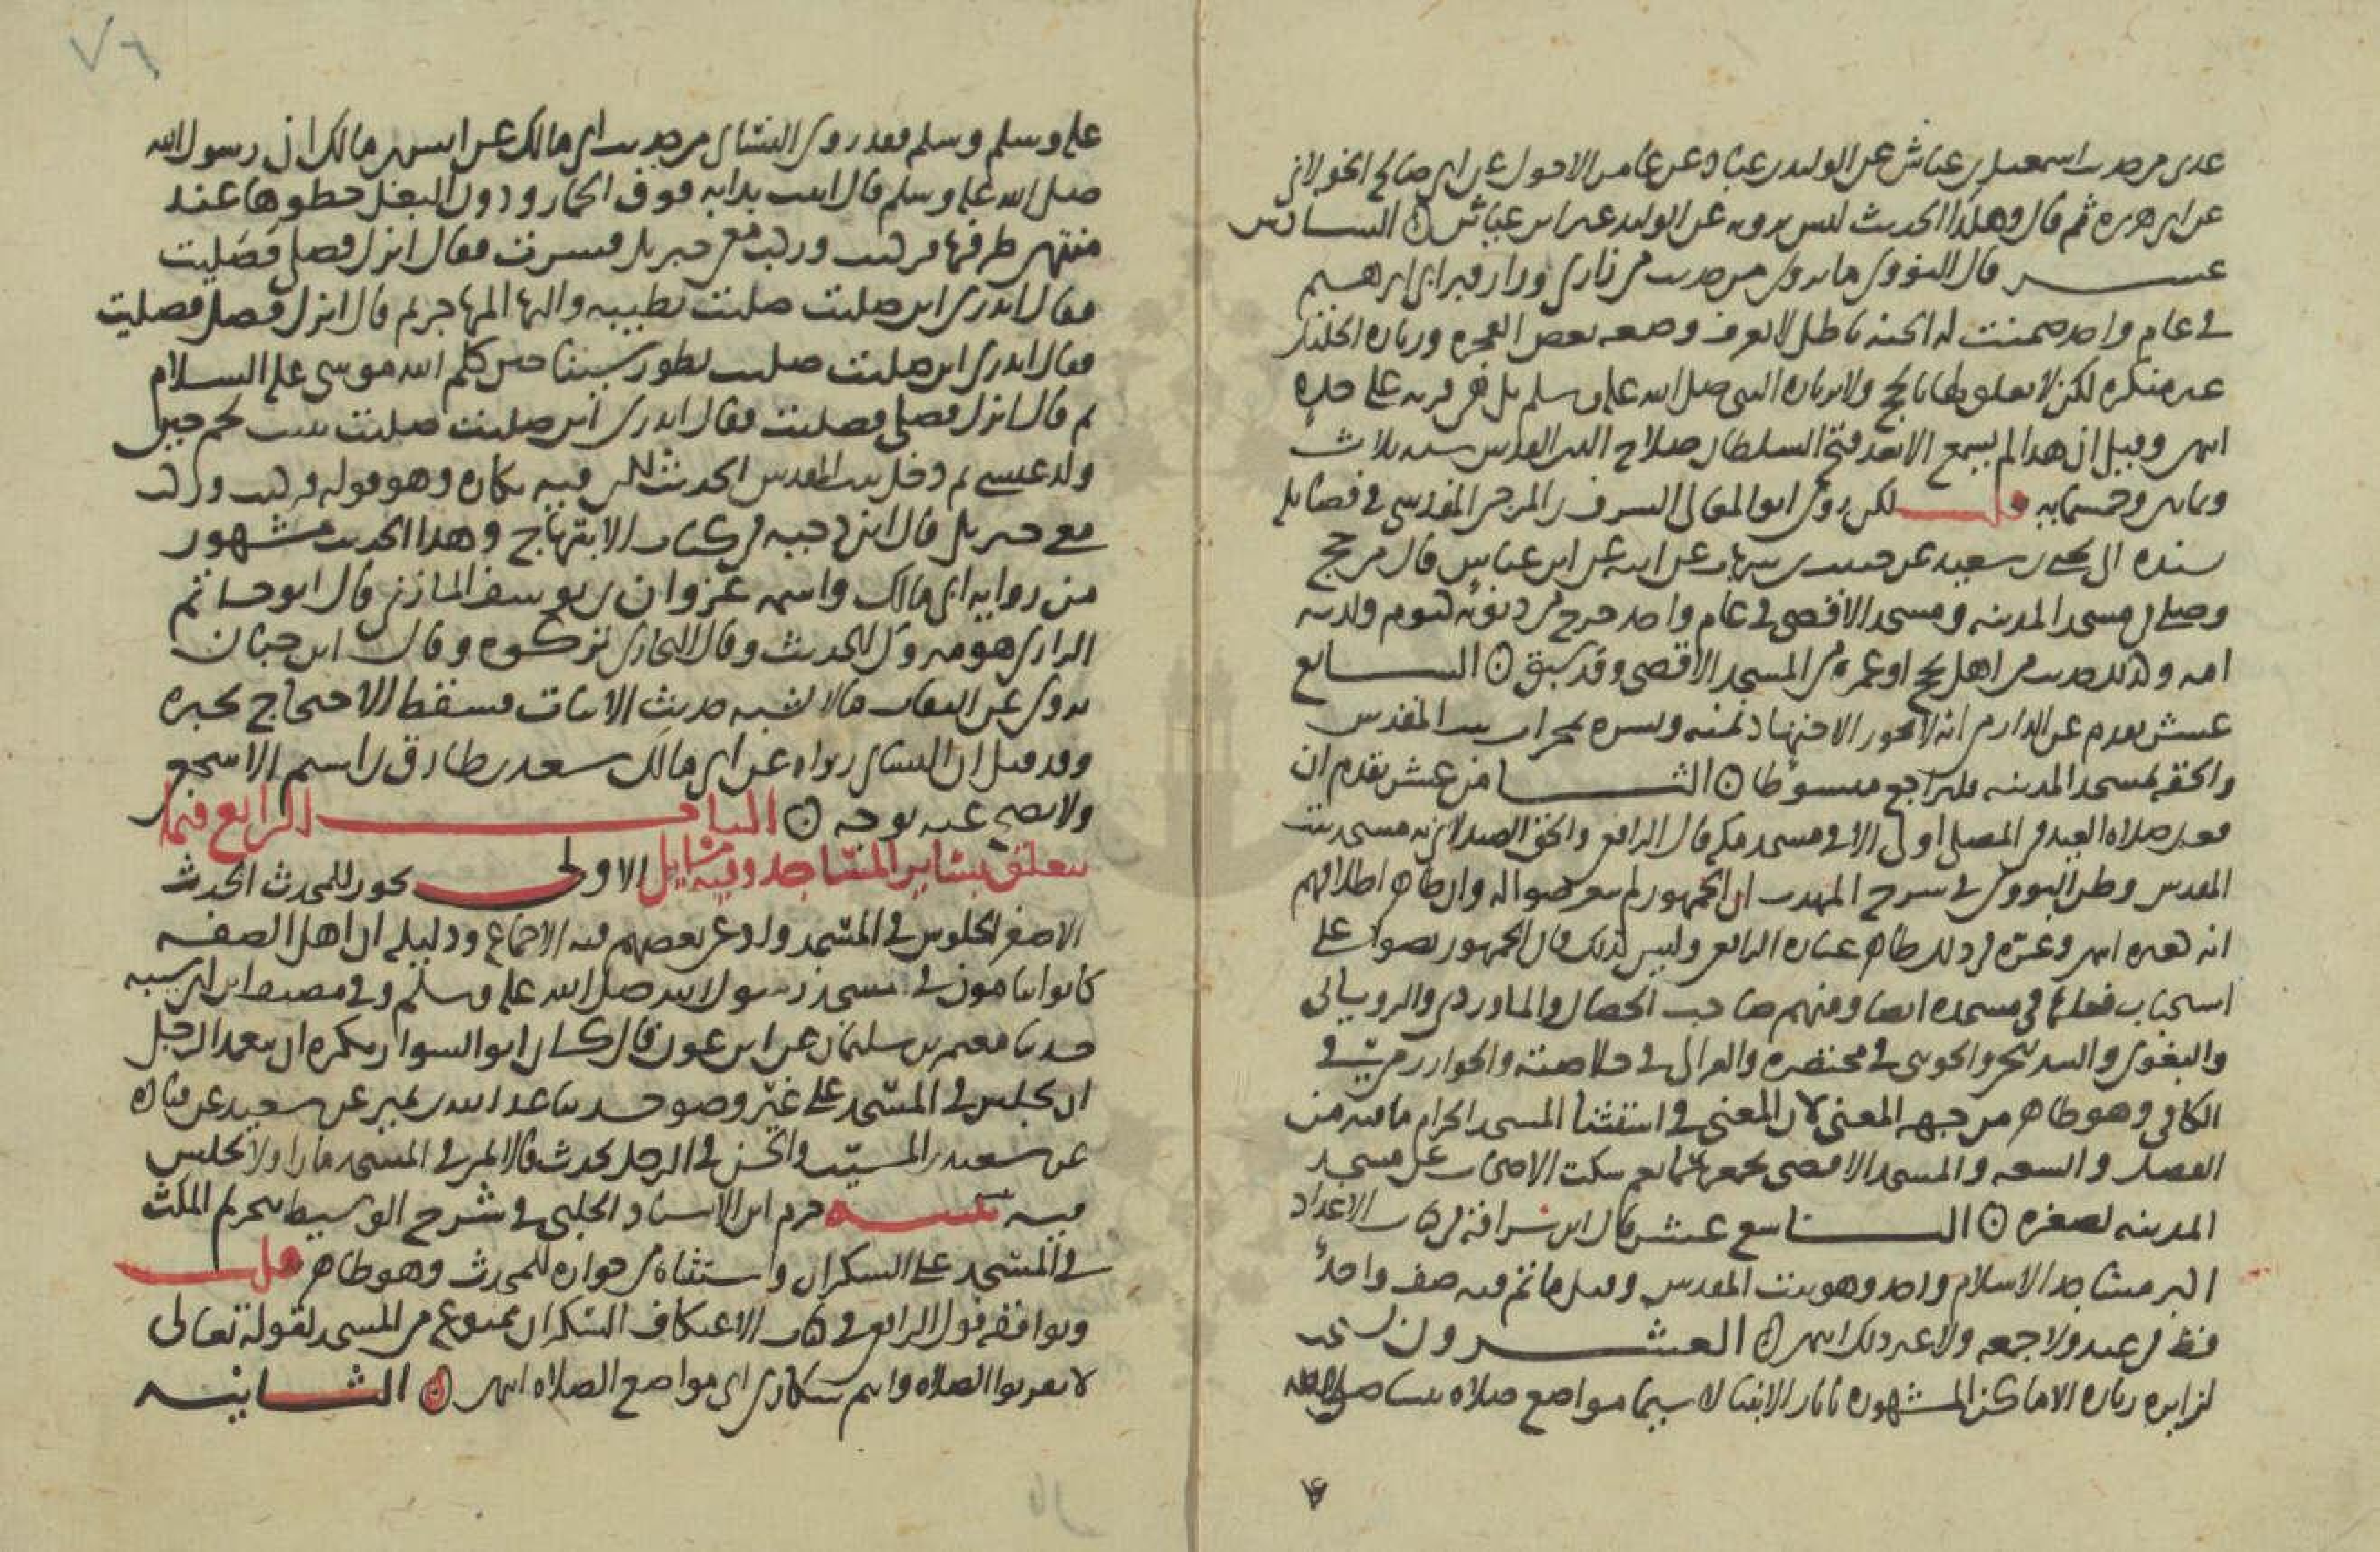 عدي من حديث اسمعيل بن عياش عن الوليد بن عباد عن عامر الاحول عن ابي صالح الخولاني
عن ابي هريرة ثم قال وهذا الحديث ليس يرويه عن الوليد غير ابن عياش ۞ السادس
عشر قال النووي ما يروى من حديث من زارني وزار قبر ابي ابرهيم
في عام واحد ضمنت له الجنة باطل لا يعرف وضعه بعض الفجرة وزيارة الخليل
غير منكرة لكن لا تعلق لها بالحج ولا بزيارة النبي صلى الله عليه وسلم بل هي قربة على حدة
انتهى وقيل ان هذا لم يسمع الا بعد فتح السلطان صلاح الدين القدس سنة ثلاث
وثمانين وخمسمايه قلت لكن روى ابو المعالي المشرف بن المرجى المقدسي في فضايله
سنده الى يحيى بن سعيد عن حبيب بن شهاب عن ابيه عن ابن عباس قال من حج
وصلى في مسجد المدينه ومسجد الاقصى في عام واحد خرج من ذنوبه كيوم ولدته
امه وكذلك حديث من اهل بحج او عمرة من المسجد الاقصى وقد سبق ۞ السابع
عشر تقدم عن الدارمي انه لا يجوز الاجتهاد يمنه ويسره بمحراب بيت المقدس
والحقه بمسجد المدينه فليراجع مبسوطا ۞ الثامن عشر تقدم ان
فعل صلاة العيد في المصلى اولى الا في مسجد مكه قال الرافعي والحق الصيدلاني به مسجد بيت
المقدس وظن النووي في شرح المهذب ان الجمهور لم يتعرضوا له وان ظاهر اطلاقهم
انه كغيره انتهى وغره في ذلك ظاهر عبارة الرافعي وليس كذلك فان الجمهور نصوا على
استحباب فعلها في مسجده ايضا ومنهم صاحب الخصال والماوردي والروياني
والبغوي والبندنيجي والجويني في مختصره والغزالي في خلاصته والخوارزمي في
الكافي وهو ظاهر من جهة المعنى لان المعنى في استثنا المسجد الحرام ما فيه من
الفضل والسعه والمسجد الاقصى يجمعهما نعم سكت الاصحاب عن مسجد
المدينه لصغره ۞ التاسع عشر قال ابن سراقة في كتاب الاعداد
اكبر مساجد الاسلام واحد وهو بيت المقدس وقيل ما تم فيه صف واحد
قط في عيد ولا جمعه ولا غير ذلك انتهى ۞ العشرون يستحب
لزايره زيارة الاماكن المشهورة باثار الانبيا لا سيما مواضع صلاة نبينا صلى الله
عليه وسلم وسلم فقد روى النسائي من حديث ابي مالك عن انس بن مالك ان رسول الله
صلى الله عليه وسلم قال اتيت بدابه فوق الحمار ودون البغل خطوها عند
منتهى طرفها فركبت وركب مع جبريل فسرت فقال انزل فصل فصليت
فقال اتدري اين صليت صليت بطيبه واليها المهاجر ثم قال انزل فصل فصليت
فقال اتدري اين صليت صليت بطور سينا حيث كلم الله موسى عليه السلام
ثم قال انزل فصل فصليت فقال اتدري اين صليت صليت ببيت لحم حيث
ولد عيسى ثم دخل بيت المقدس الحديث لكن فيه نكارة وهو قوله فركبت وركب
مع جبريل قال ابن دحيه في كتاب الابتهاج وهذا الحديث مشهور
من رواية ابي مالك واسمه غزوان بن يوسف المازني قال ابو حاتم
الرازي هو متروك الحديث وقال البخاري تركوه وقال ابن حبان
يروي عن الثقات ما لا يشبه حديث الاثبات فسقط الاحتجاج بخبره
وقد قيل ان النسائي رواه عن ابي مالك سعد بن طارق بن اشيم الاشجعي
ولا يصح عنه بوجه ۞ الباب الرابع فيما
يتعلق بساير المساجد وفيه مسايل الاولى يجوز للمحدث الحدث
الاصغر الجلوس في المسجد وادعى بعضهم فيه الاجماع ودليله ان اهل الصفه
كانوا ينامون في مسجد رسول الله صلى الله عليه وسلم وفي مصنف ابن ابي شيبه
حدثنا معتمر بن سليمان عن ابن عون قال كان ابو السوار يكره ان يتعمد الرجل
ان يجلس في المسجد على غير وضو حدثنا عبد الله بن نمير عن سعيد عن قتاده
عن سعيد بن المسيب والحسن في الرجل يحدث قالا يمر في المسجد مارا ولا يجلس
فيه تنبيه جزم ابن الاستاد الحلبي في شرح الوسيط بتحريم المكث
في المسجد على السكران واستثناه من جوازه للمحدث وهو ظاهر قلت
ويوافقه قول الرافعي في كتاب الاعتكاف السكران ممنوع من المسجد لقوله تعالى
لا تقربوا الصلاه وانتم سكارى اي مواضع الصلاه انتهى ۞ الثانيه